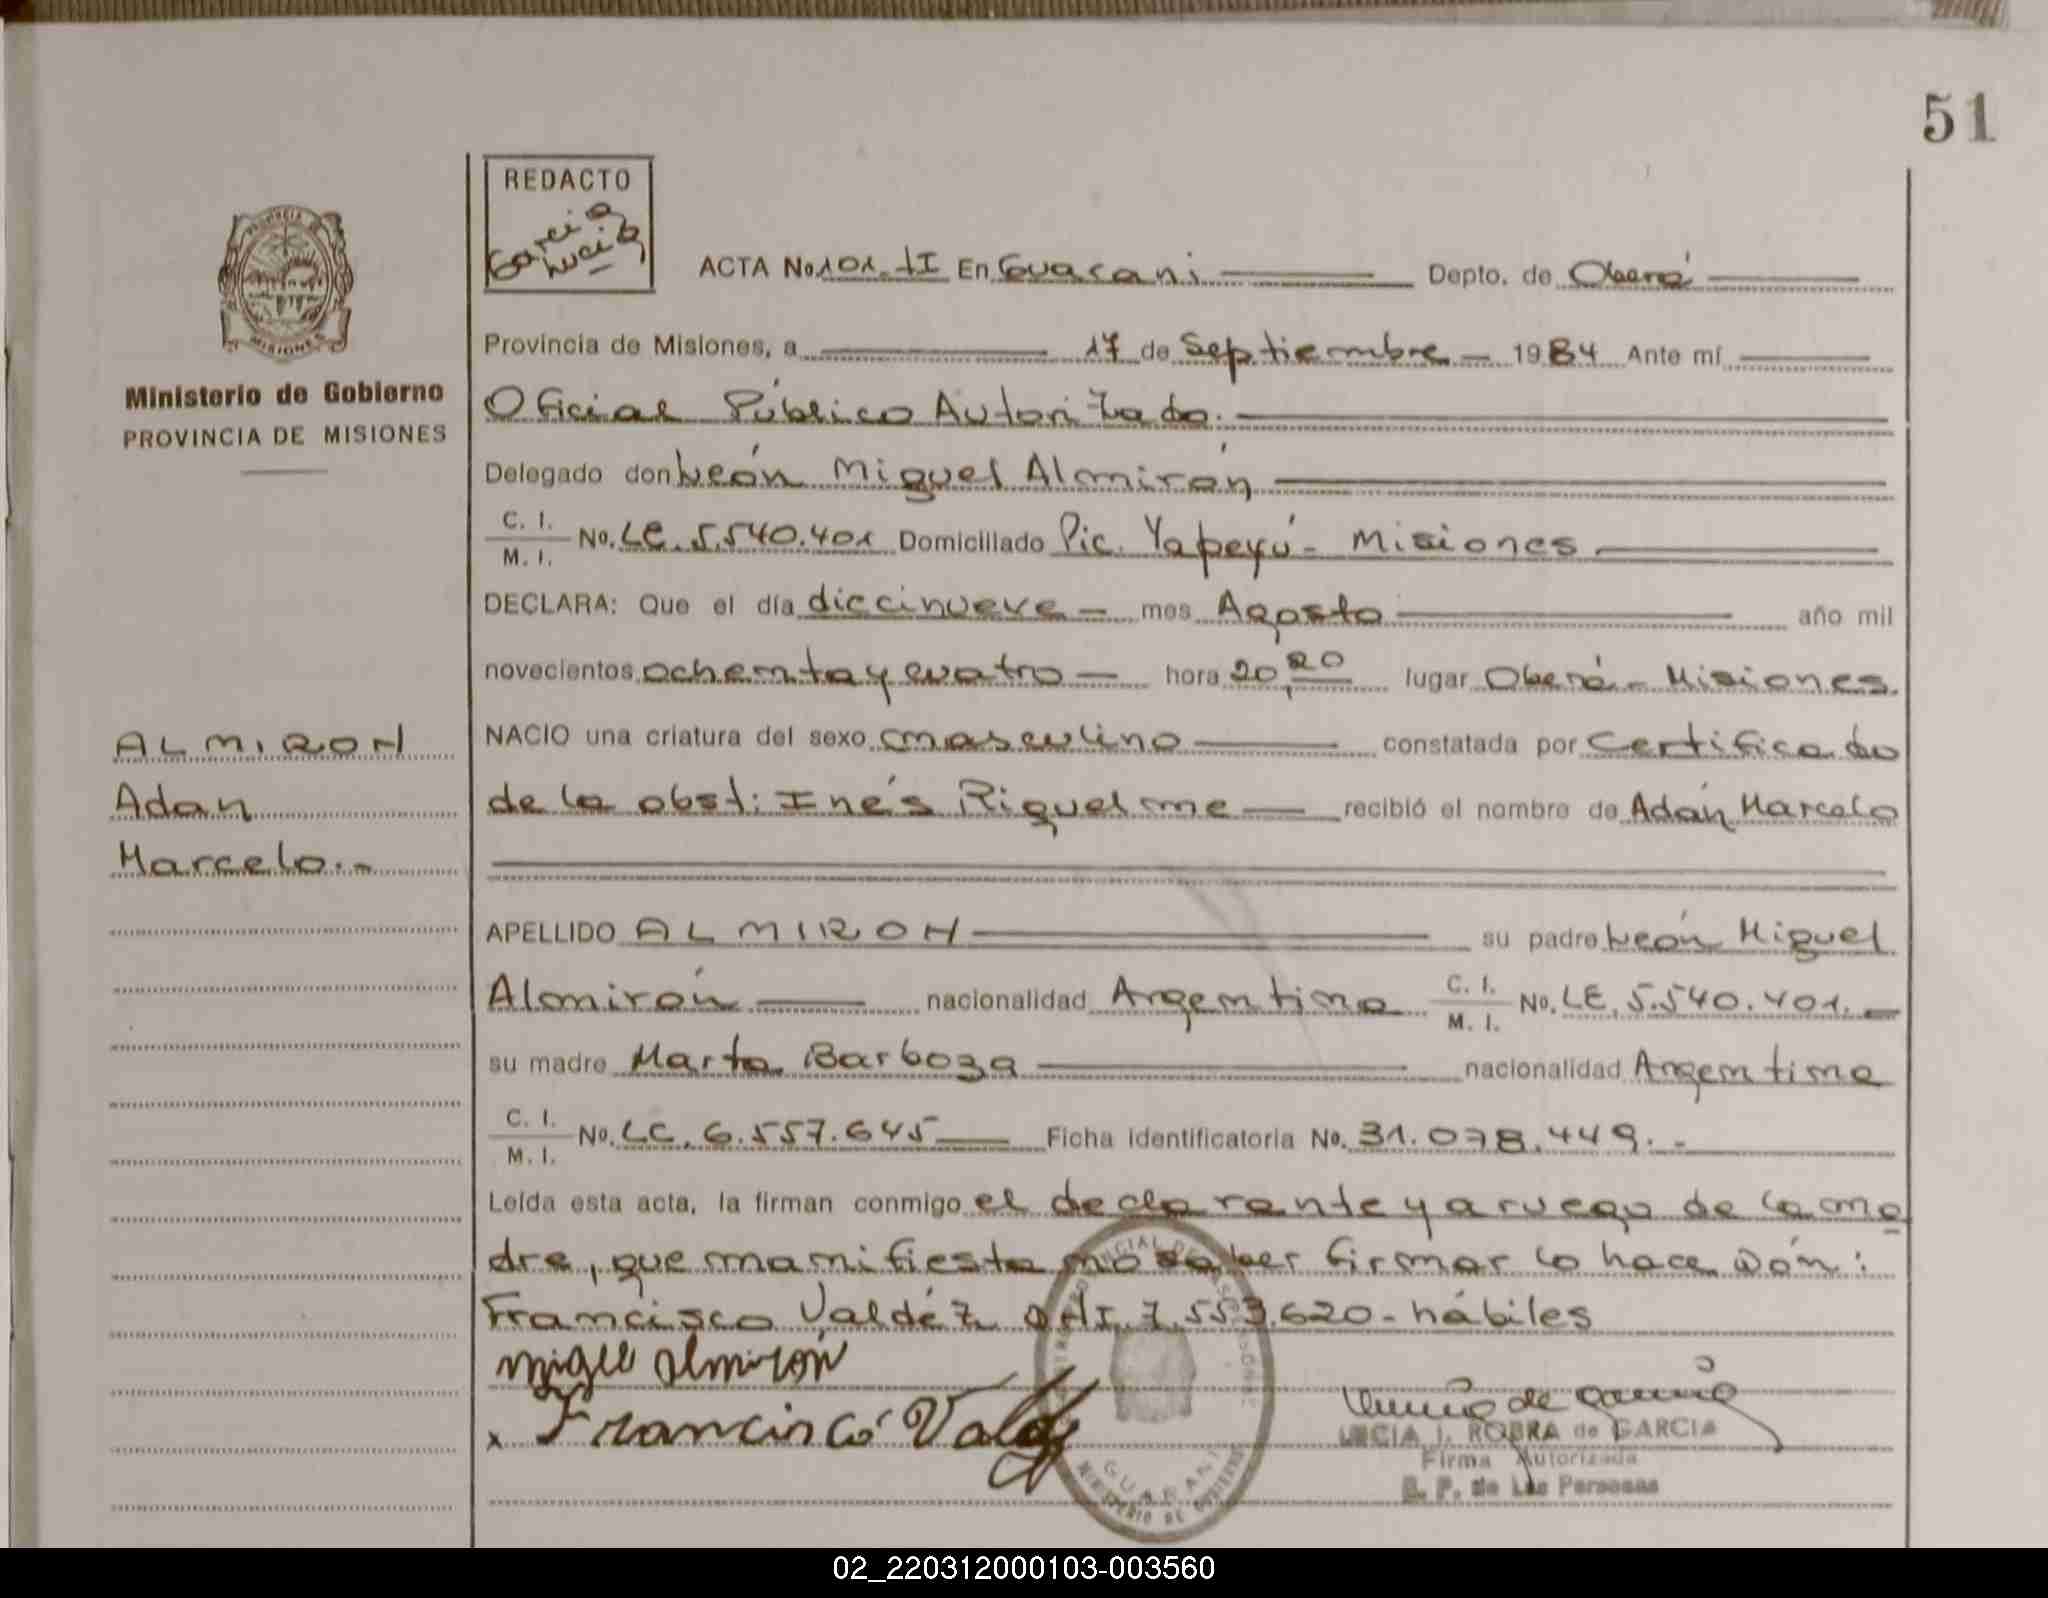 51
REDACTO
Garcia
Lucia
ACTA No 101. tI En Guarani Depto. de Oberá
PROVINCIA
MISIONES
Provincia de Misiones, a 17 de Septiembre 1984 Ante mí
Ministerio de Gobierno
PROVINCIA DE MISIONES
Oficial Público Autorizado.
Delegado don León Miguel Almirón
C. I.
M. I. No. LE. 5.540.401 Domiciliado Pic. Yapeyú - Misiones
DECLARA: Que el día diecinueve mes Agosto año mil
novecientos ochenta y cuatro hora 20,20 lugar Oberá - Misiones
ALMIRON
NACIO una criatura del sexo masculino constatada por Certificado
Adan
de la obst: Inés Riquelme recibió el nombre de Adán Marcelo
Marcelo.-
APELLIDO ALMIRON su padre León Miguel
Almirón nacionalidad Argentina C. I.
M. I. No. LE. 5.540.401.
su madre Marta Barboza nacionalidad Argentina
C. I.
M. I. No. LC. 6.557.645 Ficha identificatoria No. 31.078.449.-
Leída esta acta, la firman conmigo el declarante y a ruego de la ma
dre, que manifiesta no saber firmar lo hace Dón:
Francisco Valdéz DNI. 7.553.620 - hábiles
Miguel Almiron
x Francisco Valdez
GUARANI
MINISTERIO DE GOBIERNO
LUCIA I. ROBRA de GARCIA
Firma Autorizada
R. P. de Las Personas
02_220312000103-003560